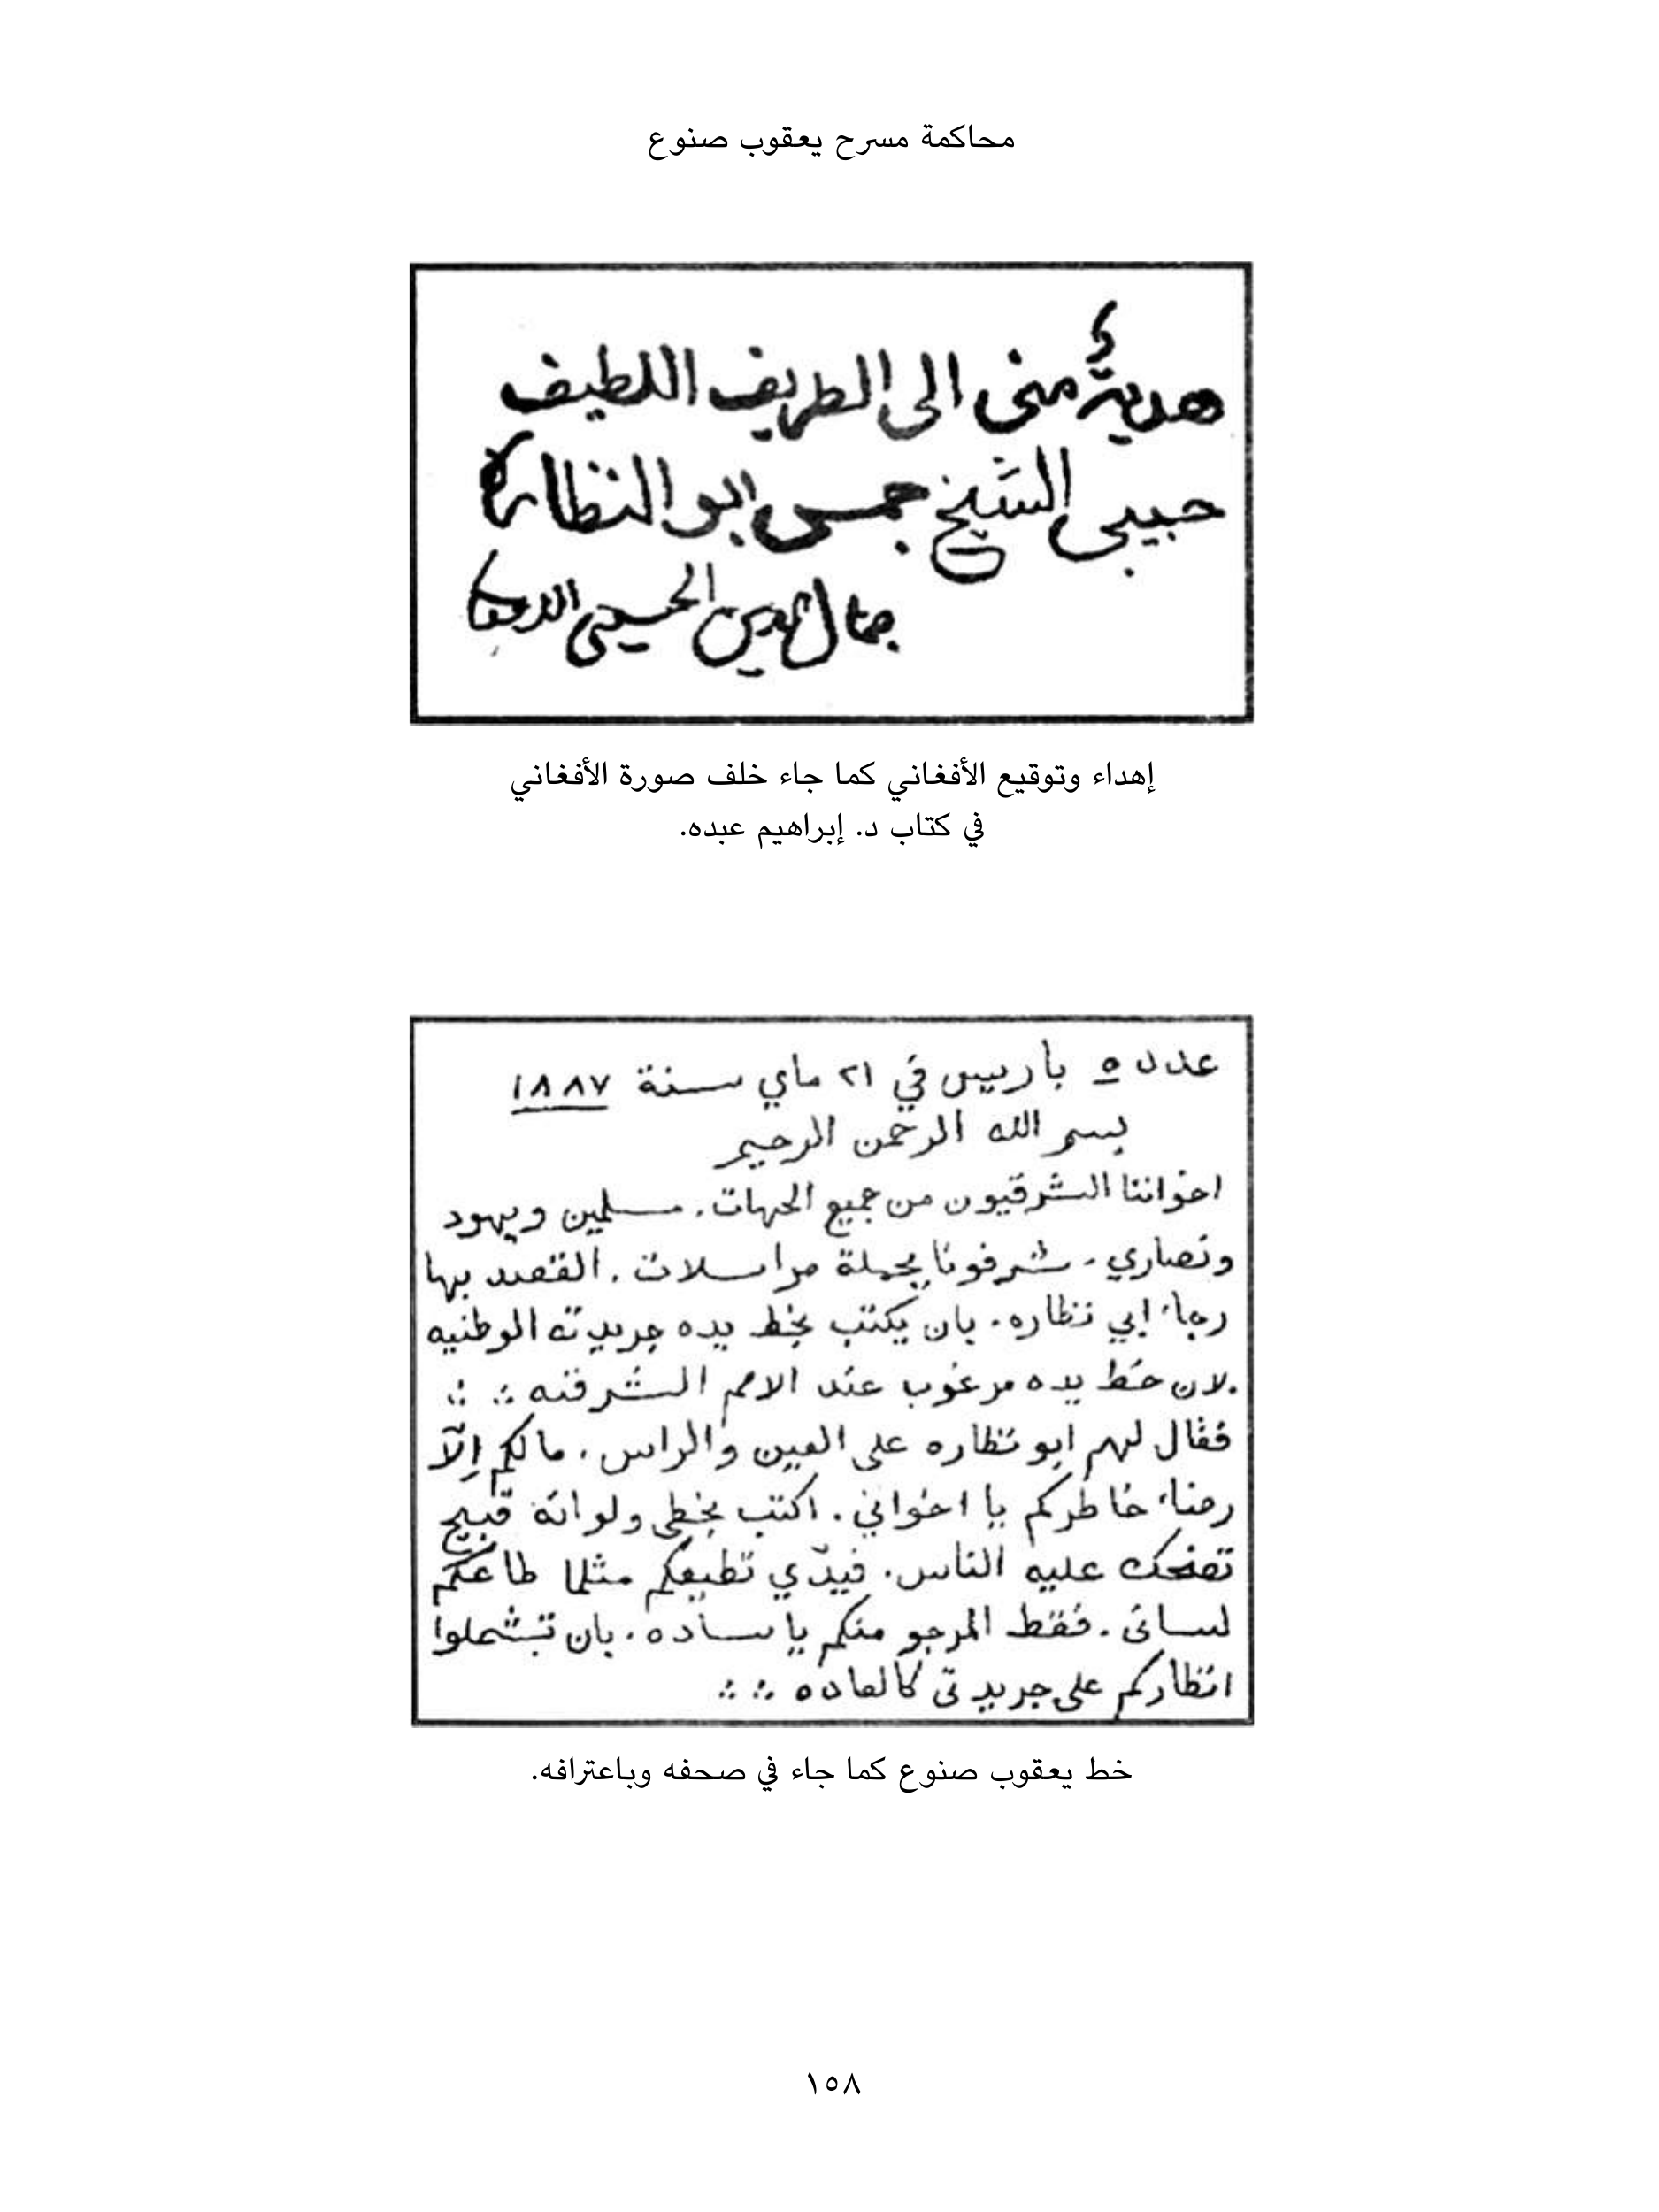 محاكمة مسرح يعقوب صنوع
هدية منى الى الظريف اللطيف
حبيبى الشيخ جمس ابو النظارة
جمال الدين الحسينى
إهداء وتوقيع الأفغاني كما جاء خلف صورة الأفغاني
في كتاب د. إبراهيم عبده.
عدد ٥ باريس في ٢١ ماي سنة ١٨٨٧
بسم الله الرحمن الرحيم
اخواننا الشرقيون من جميع الجهات. مسلمين ويهود
ونصاري. شرفونا بجملة مراسلات. القصد بها
رجاء ابي نظاره. بان يكتب بخط يده جريدته الوطنيه
لان خط يده مرغوب عند الامم الشرقيه
فقال لهم ابو نظاره على العين والراس. مالكم إلّا
رضاء خاطركم يا اخواني. اكتب بخطى ولو انه قبيح
تضحك عليه الناس. فيدّي تطيعكم مثلما طاعكم
لسانى. فقط المرجو منكم يا ساده. بان تشملوا
انظاركم على جريدتى كالعاده
خط يعقوب صنوع كما جاء في صحفه وباعترافه.
١٥٨